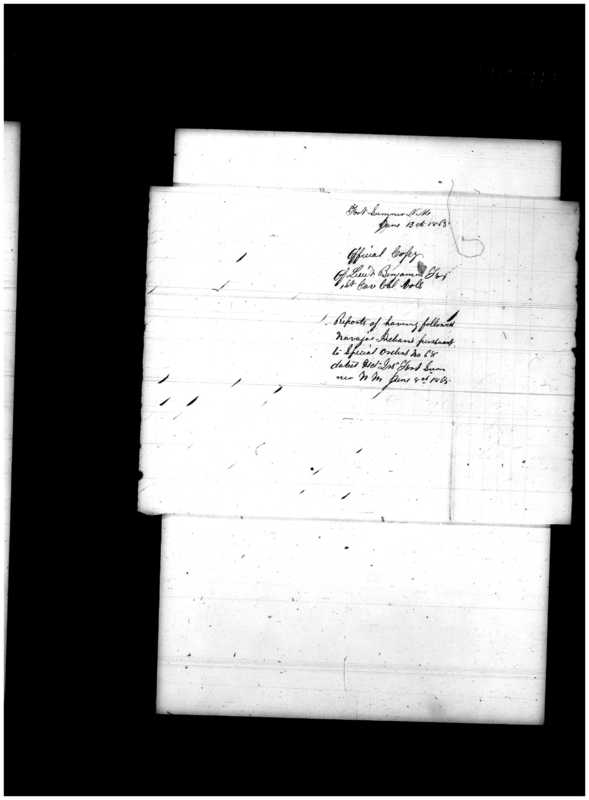 Fort Sumner N.M.
June 13th 1865
Official Copy
Of Lieut Benjamin
1st Cav Cal Vols
1. Reports of having followed
Navajoe Indians pursuant
to Special Orders No 68
dated Fort Sum
ner N M June 8th 1865